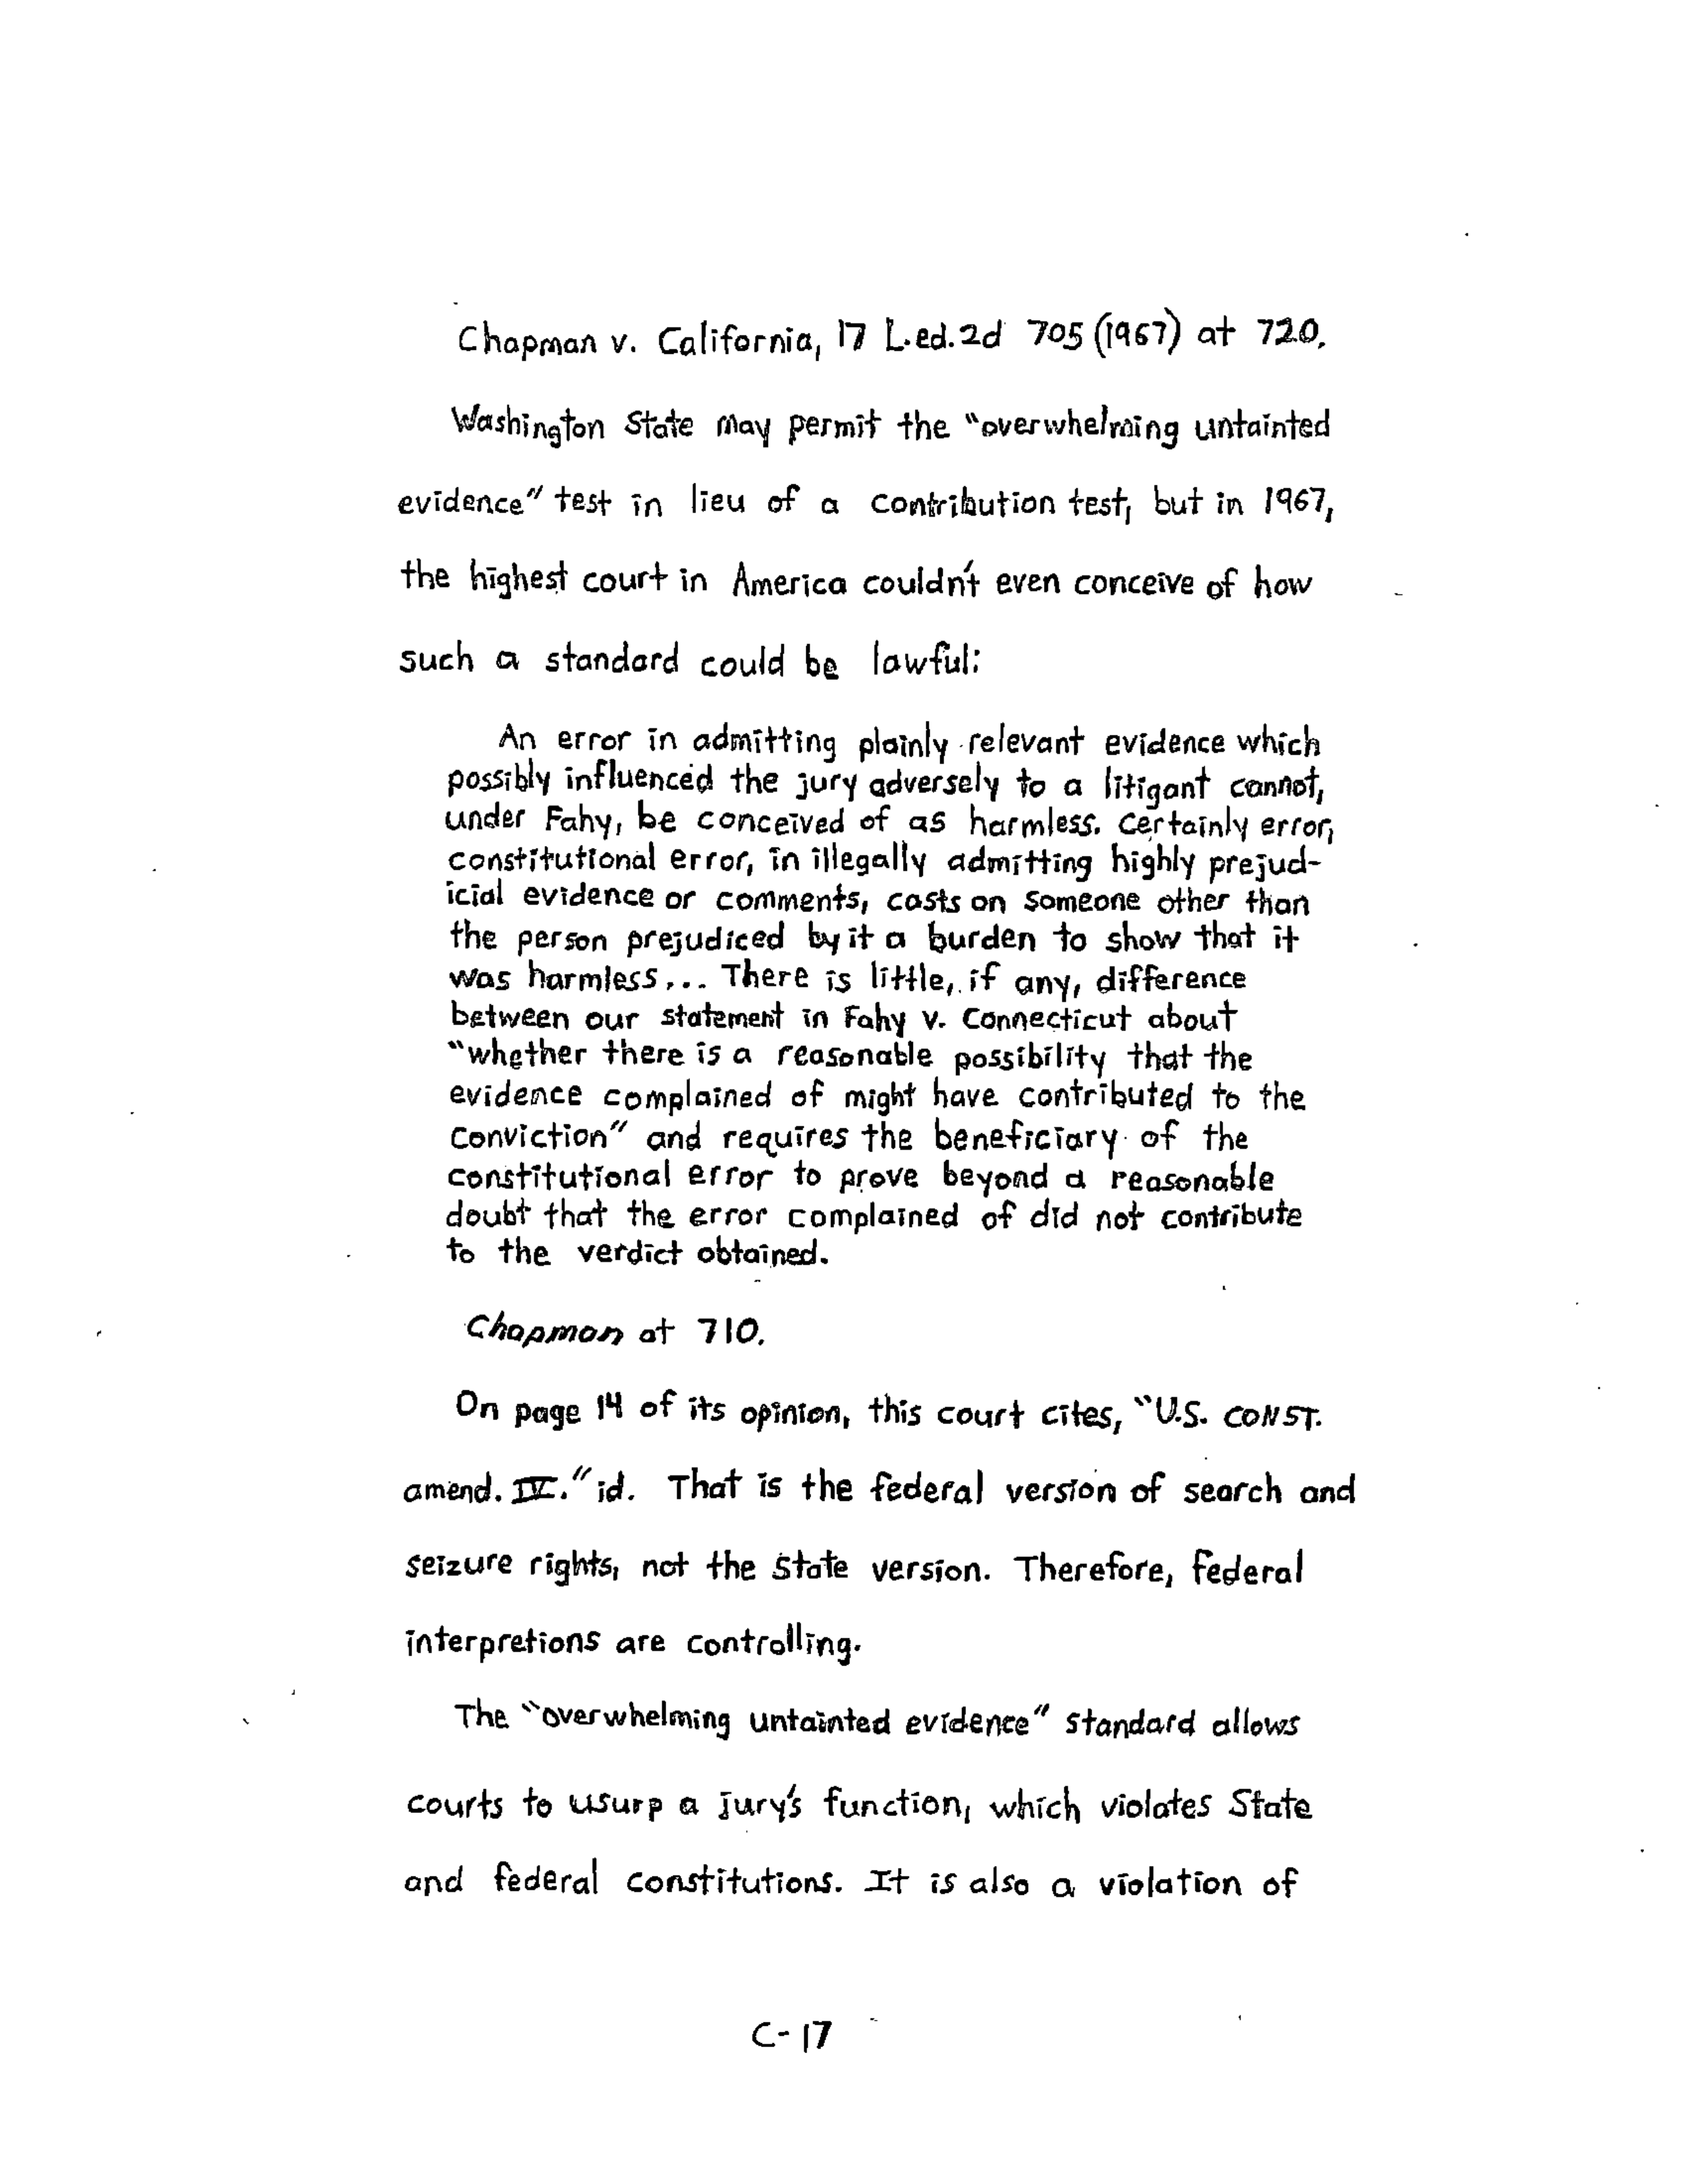 Chapman v. California, 17 L.ed.2d 705 (1967) at 720.
Washington State may permit the "overwhelming untainted
evidence" test in lieu of a contribution test, but in 1967,
the highest court in America couldn't even conceive of how
such a standard could be lawful:
An error in admitting plainly relevant evidence which
possibly influenced the jury adversely to a litigant cannot,
under Fahy, be conceived of as harmless. Certainly error,
constitutional error, in illegally admitting highly prejud-
icial evidence or comments, casts on someone other than
the person prejudiced by it a burden to show that it
was harmless... There is little, if any, difference
between our statement in Fahy v. Connecticut about
"whether there is a reasonable possibility that the
evidence complained of might have contributed to the
conviction" and requires the beneficiary of the
constitutional error to prove beyond a reasonable
doubt that the error complained of did not contribute
to the verdict obtained.
Chapman at 710.
On page 14 of its opinion, this court cites, "U.S. CONST.
amend. IV." id. That is the federal version of search and
seizure rights, not the State version. Therefore, federal
interpretions are controlling.
The "overwhelming untainted evidence" standard allows
courts to usurp a jury's function, which violates State
and federal constitutions. It is also a violation of
C-17